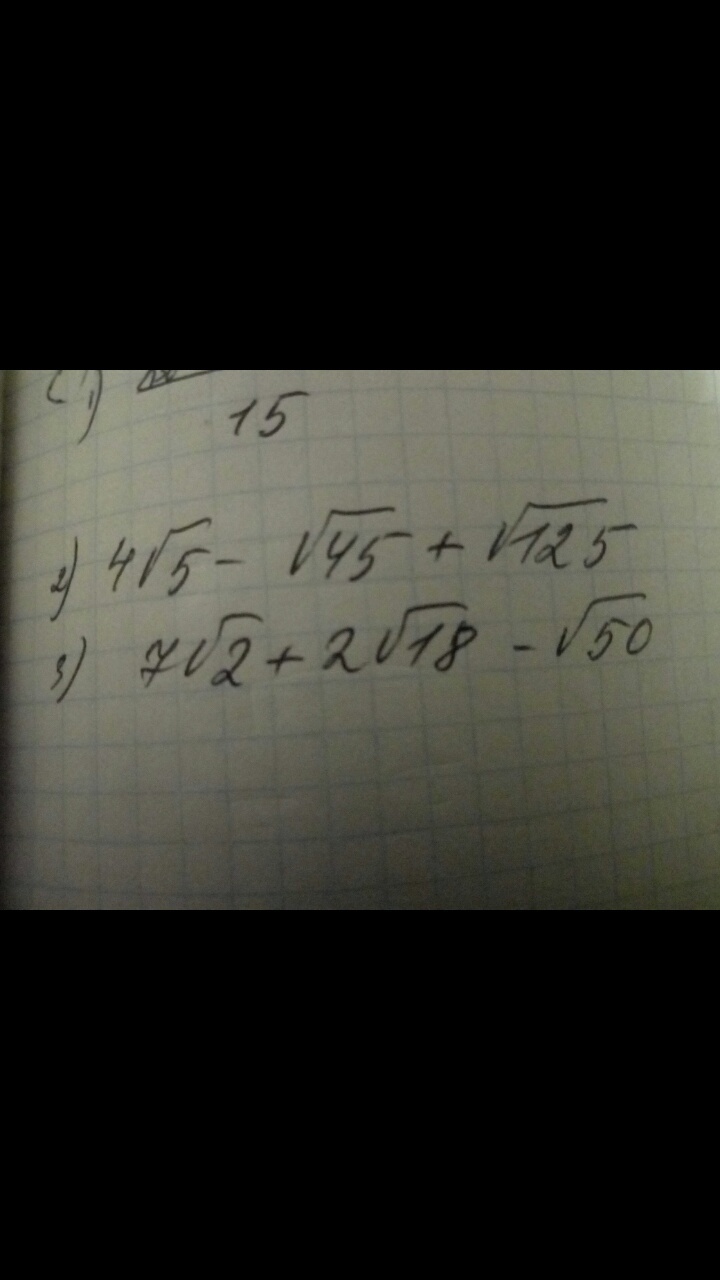 1)
15
2) 4√5 - √45 + √125
3) 7√2 + 2√18 - √50